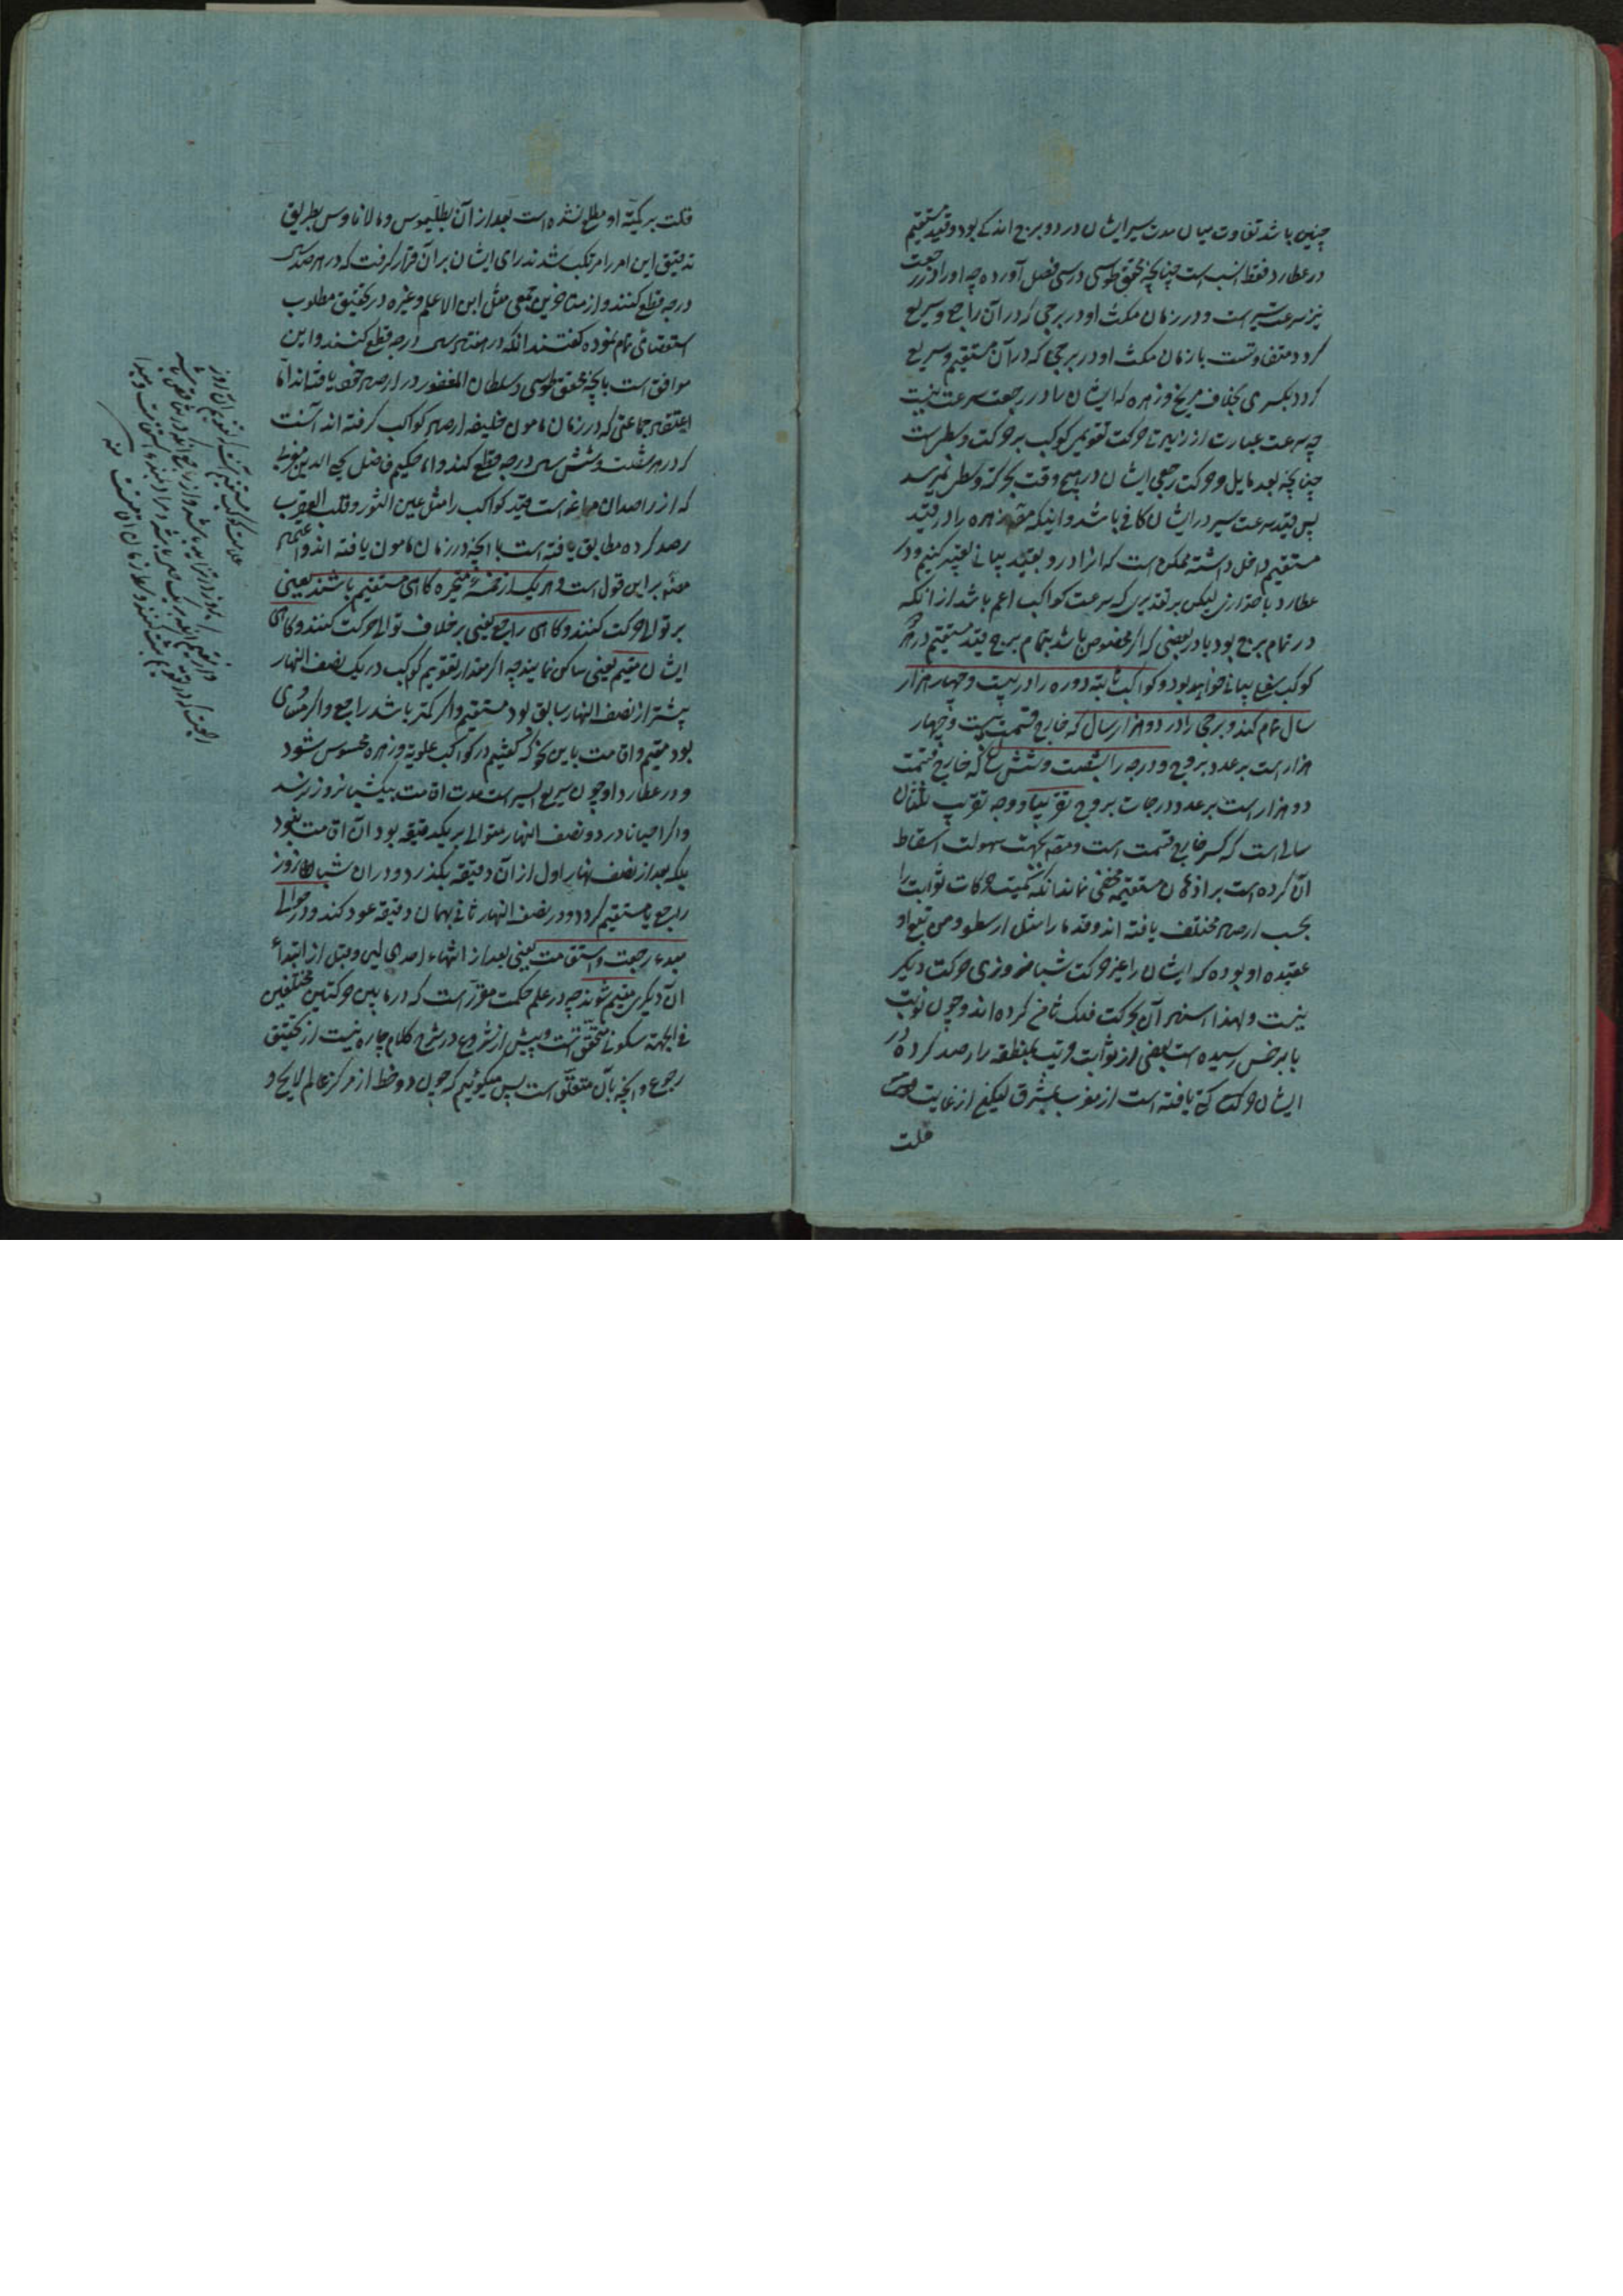 چنین باشد تفاوت میان مدت سیر ایشان در دو برج اندکی بود و قید مستقیم
در عطارد فقط انسب است چنانچه محقق طوسی در سی فصل آورده چه او را در رجعت
نیز سرعت سیر است و در زمان مکث او در برجی که در آن راجع و سریع
گردد متفاوتست با زمان مکث او در برجی که در آن مستقیم و سریع
گردد بکسری بخلاف مریخ و زهره که ایشان را در رجعت سرعت نیست
چه سرعت عبارت از زیادتی حرکت تقویمی کوکب بر حرکت وسطی است
چنانچه بعد مایل و حرکت رجعی ایشان در هیچ وقت بحرکت وسطی نمیرسد
پس قید سرعت سیر در ایشان کافی باشد و اینکه مصنف زهره را در قید
مستقیم داخل داشته ممکن است که انرا در و بقید بیانی تعبیر کنیم و در
عطارد باحترازی لیکن بر تقدیری که سرعت کواکب اعم باشد از انکه
در تمام برج بود یا در بعضی که اگر مخصوص باشد بتمام برج قید مستقیم در هر
کوکب سریع بیانی خواهد بود و کواکب ثابته دوره را در بیست و چهار هزار
سال تمام کند و برجی را در دو هزار سال که خارج قسمت بیست و چهار
هزار است بر عدد بروج و درجه را بشصت و شش سال که خارج قسمت
دو هزار است بر عدد درجات برج تقریبا و وجه تقریب ثلثان
سالی است که کسر خارج قسمت است و مصنف بجهت سهولت اسقاط
آن کرده است بر اذهان مستقیمه مخفی نماند که کمیت حرکات ثوابت را
بحسب ارصاد مختلف یافته اند و قدما را مثل ارسطو و من تبع او
عقیده او بوده که ایشان را غیر حرکت شبانه روزی حرکت دیگر
نیست و لهذا استناد آن بحرکت فلک ثامن کرده اند و چون نوبت
بابرخس رسیده است بعضی از ثوابت قریب بمنطقه را رصد کرده و در
ایشان حرکت یافته است از مغرب بمشرق لیکن از غایت
قلت
قلت بر کمیت او مطلع نشده است بعد از آن بطلیموس و مالاناوس بطریق
تدقیق این امر را مرتکب شدند رای ایشان بر آن قرار گرفت که در هر صد سال
درجه قطع کنند و از متاخرین جمعی مثل ابن الاعلم و غیره در تحقیق مطلوب
استقصای تمام نموده گفتند انکه در هفتاد سال درجه قطع کنند و این
موافق است بآنچه محقق طوسی و سلطان المغفور در ارصاد خود یافته اند اما
اعتقاد جماعتی که در زمان مامون خلیفه ارصاد کواکب گرفته اند آنست
که در هر شصت و شش سال درجه قطع کنند و اما حکیم فاضل محیی الدین مغربی
که از راصدان مراغه است چند کواکب را مثل عین الثور و قلب العقرب
رصد کرده مطابق یافته است با آنچه در زمان مامون یافته اند و اعتماد
مصنف بر این قول است و هر یک از خمسه متحیره گاهی مستقیم باشند یعنی
بر توالی حرکت کنند و گاهی راجع یعنی بر خلاف توالی حرکت کنند و گاهی
ایشان مقیم یعنی ساکن نمایند چه اگر مقدار تقویم کوکب در یک نصف النهار
بیشتر از نصف النهار سابق بود مستقیم و اگر کمتر باشد راجع و اگر مساوی
بود مقیم و اقامت باین نحو که گفتیم در کواکب علویه و زهره محسوس شود
و در عطارد او چون سریع السیر است مدت اقامت بیکشبانروز نرسد
و اگر احیانا در دو نصف النهار متوالی بر یکدقیقه بود آن اقامت نبود
بلکه بعد از نصف نهار اول از آن دقیقه بگذرد و در ان شبانروز
راجع یا مستقیم گردد و در نصف النهار ثانی بهمان دقیقه عود کند و در حوالی
مبدء رجعت و استقامت یعنی بعد از انتهاء احدی لین و قبل از ابتداء
آن دیگری مقیم شوند چه در علم حکمت مقرر است که در مابین حرکتین مختلفین
فی الجهه سکونی متحقق است و پیش از شروع در شرح کلام چاره نیست از تحقیق
رجوع و آنچه بآن متعلق است پس میگوئیم که چون دو خط از مرکز عالم لایح و